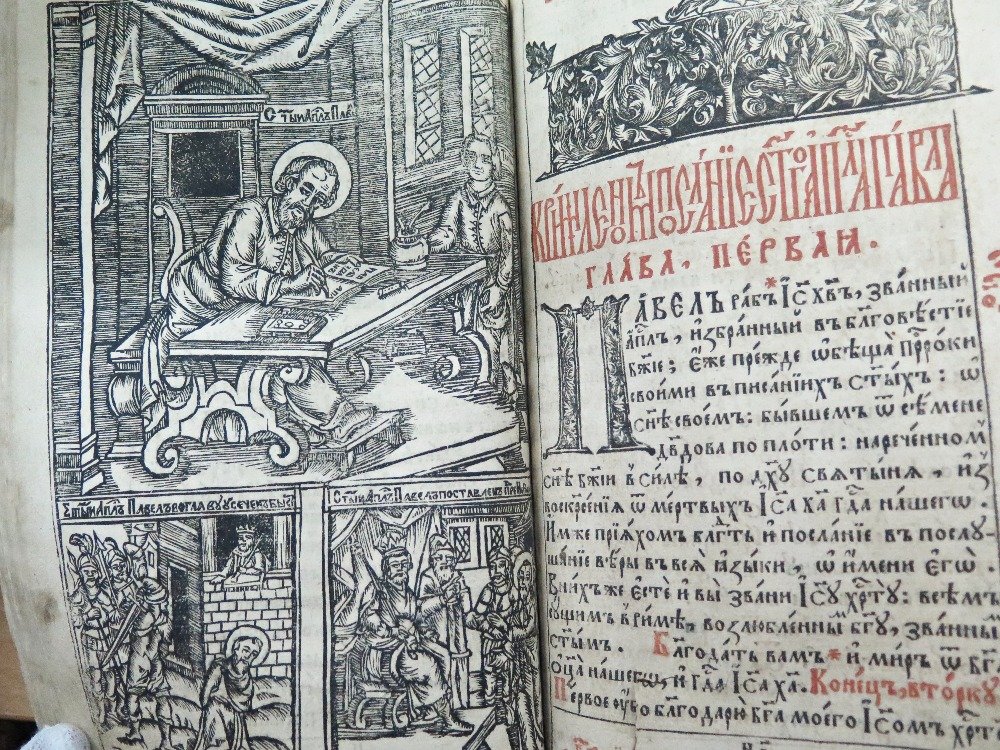 С͠тыи Ап͠лъ Павє
Ст͠ыи Ап͠лъ Павєлъ во главу усѣчєнъ бы
Ст͠ыи Ап͠лъ Павєлъ поставлєнъ
К римлѧномъ посланїє ст͠агѡ ап͠ла паѵла
ГЛАВА. ПЕ́РВАѦ.
ПА́ВЕЛЪ ра́бъ І҆С͠ Хв͠ъ, зва́нный
а҆п͠лъ, и҆збра́нный въ бл͠говѣ́стїє
бж͠їє; є҆́жє прє́ждє ѡ҆бѣща̀ прⷪ҇рѡ́ки
свои́ми въ писа́нїихъ ст͠ы́хъ : ѡ҆
сн͠ѣ своє́мъ : бы́вшємъ ѿ сѣ́мєнє
дв͠дова по пло́ти : нарєчє́нномъ
сн͠ѣ бж͠їи въ си́лѣ , по дх͠у свѧты́нѧ , и҆з̾
воскрє́сєнїѧ ѿ мє́ртвыхъ І҆С͠а Ха͠ гдⷭ҇а на́шєгѡ
И҆́мжє прїѧ́хомъ блⷣгть и҆ посла́нїє въ послу-
ша́нїє вѣ́ры въ всѧ̀ ѧ҆зы́ки , ѡ҆ и҆́мєни є҆гѡ̀ .
В ни́хжє є҆стѐ и҆ вы̀ зва́ни І҆С͠у хрⷭ҇ту : всѣ́мъ
су́щимъ в ри́мѣ , возлю́блєннымъ бг͠у , зва́ннымъ
ст͠ымъ . Бл͠года́ть ва́мъ * и҆ ми́ръ ѿ бг͠а
ѻ҆ц͠а на́шєгѡ , и҆ гдⷭ҇а І҆С͠а Ха͠ . Конє́цъ , вто́рку
Пє́рвоє у҆́бо благодарю̀ бг͠а моєго̀ І҆С͠омъ хрⷭ҇т